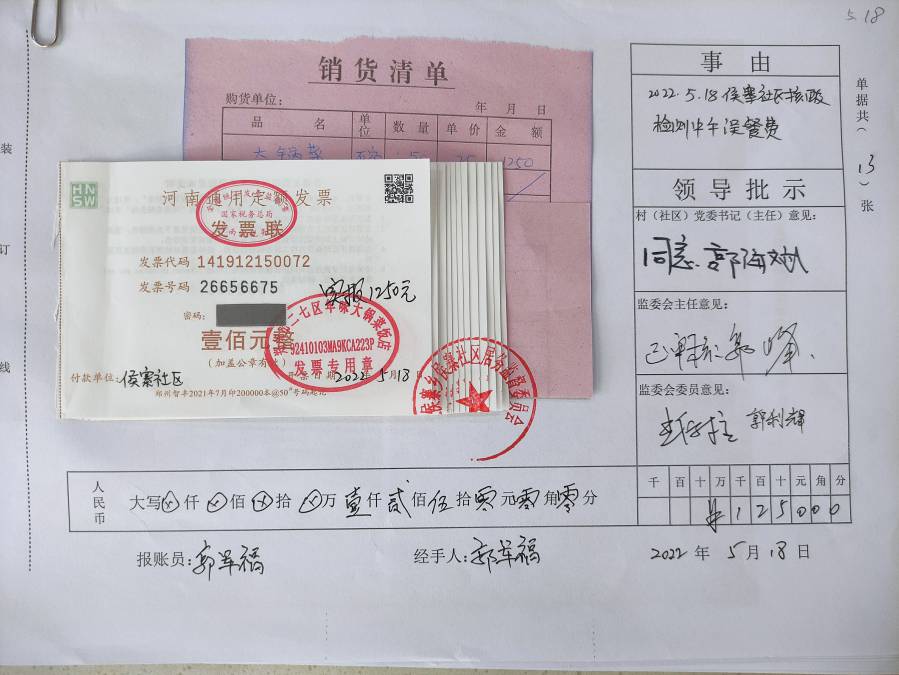 5.18
销货清单
购货单位:
年 月 日
品 名 单位 数量 单价 金额
大锅菜 5 25 1250
HN
SW
河南通用定额发票
国家税务总局
发票联
发票代码 141912150072
发票号码 26656675
实报1250元
密码:
壹佰元整
(加盖公章有效)
92410103MA9KCA223P
发票专用章
开票日期 2022年5月18
付款单位: 侯寨社区
郑州智丰2021年7月印200000本@50
事由
2022.5.18侯寨社区核酸
检测中午误餐费
单据共(13)张
领导批示
村(社区)党委书记(主任)意见:
同意.
监委会主任意见:
监委会委员意见:
郭利辉
千 百 十 万 千 百 十 元 角 分
¥ 1 2 5 0 0 0
人民币
大写 ⊗ 仟 ⊗ 佰 ⊗ 拾 ⊗ 万 壹 仟 贰 佰 伍 拾 零 元 零 角 零 分
报账员: 郭军福
经手人: 郭军福
2022 年 5 月 18 日
装
订
线